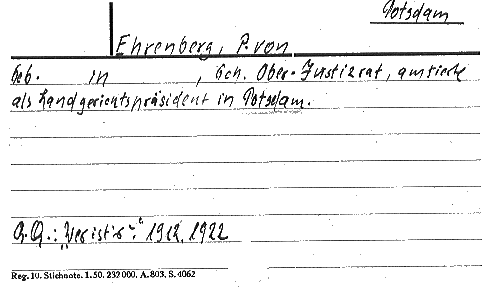 Potsdam
Ehrenberg, P. von
geb. in , Geh. Ober-Justizrat, amtierte
als Landgerichtspräsident in Potsdam.
"Wer ist's" 1912, 1922
Reg. 10. Stichnote. 1. 50. 232000. A. 803. S. 4062